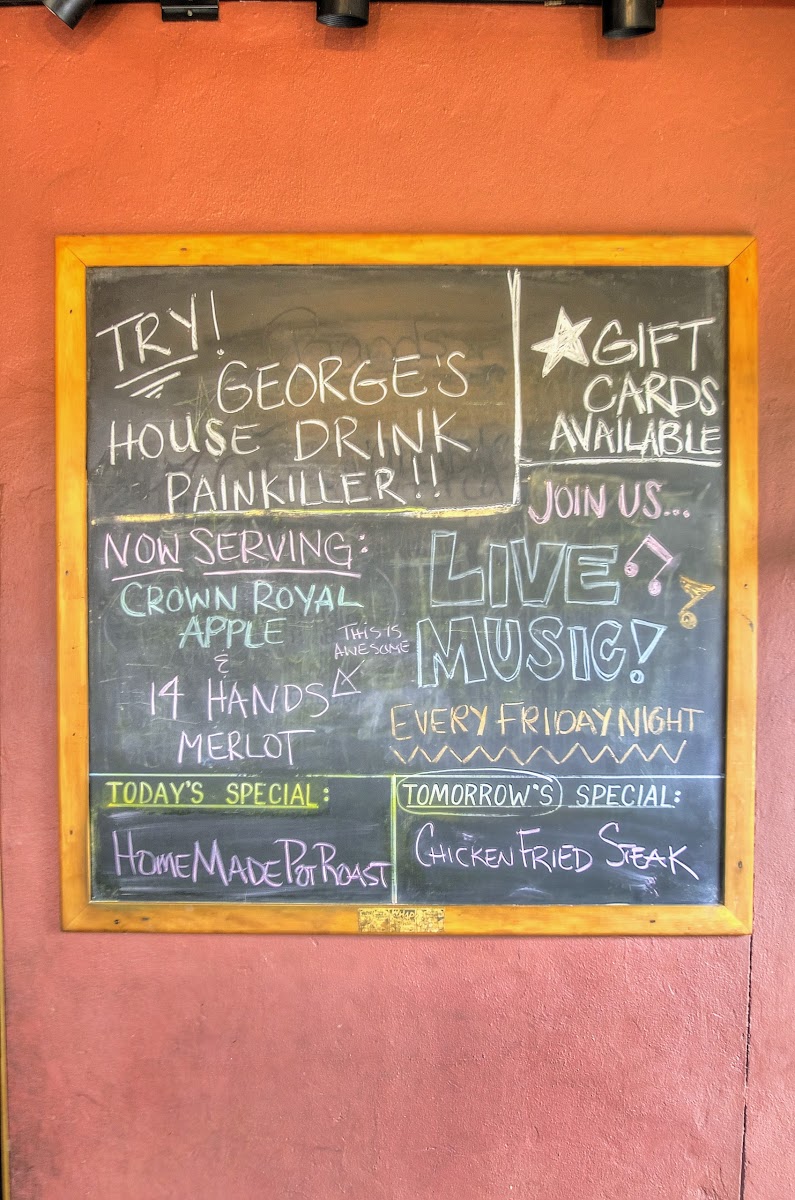 TRY!
GEORGE'S
HOUSE DRINK
PAINKILLER!!
GIFT
CARDS
AVAILABLE
NOW SERVING:
CROWN ROYAL
APPLE
&
14 HANDS
MERLOT
THIS IS
AWESOME
JOIN US...
LIVE
MUSIC!
EVERY FRIDAY NIGHT
TODAY'S SPECIAL:
HOMEMADE POT ROAST
TOMORROW'S SPECIAL:
CHICKEN FRIED STEAK